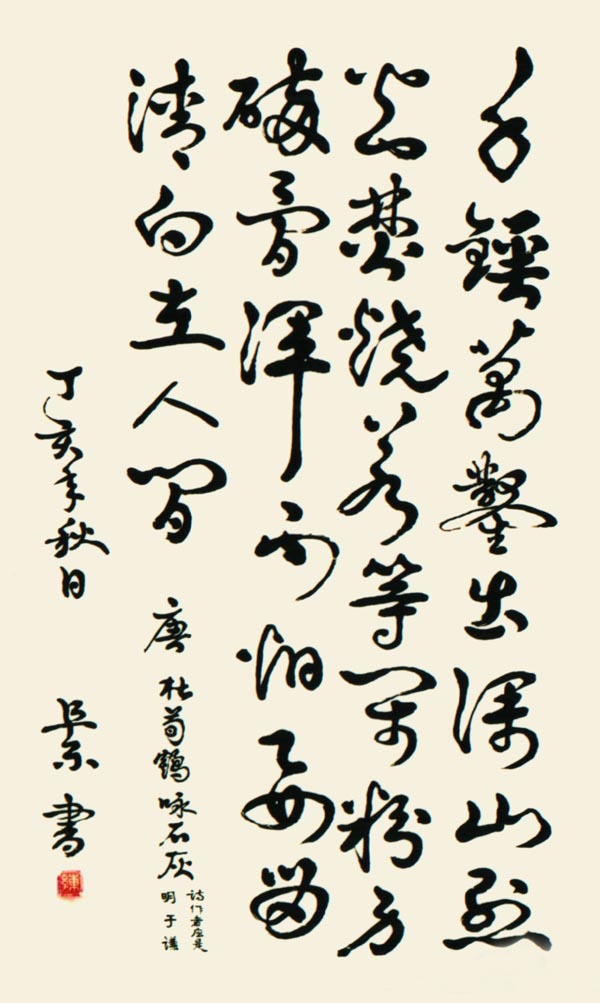 千錘萬鑿出深山烈
火焚燒若等闲粉身
碎骨渾不怕要留
清白在人间
唐杜荀鶴咏石灰
诗作者应是
明于谦
丁亥年秋日
書